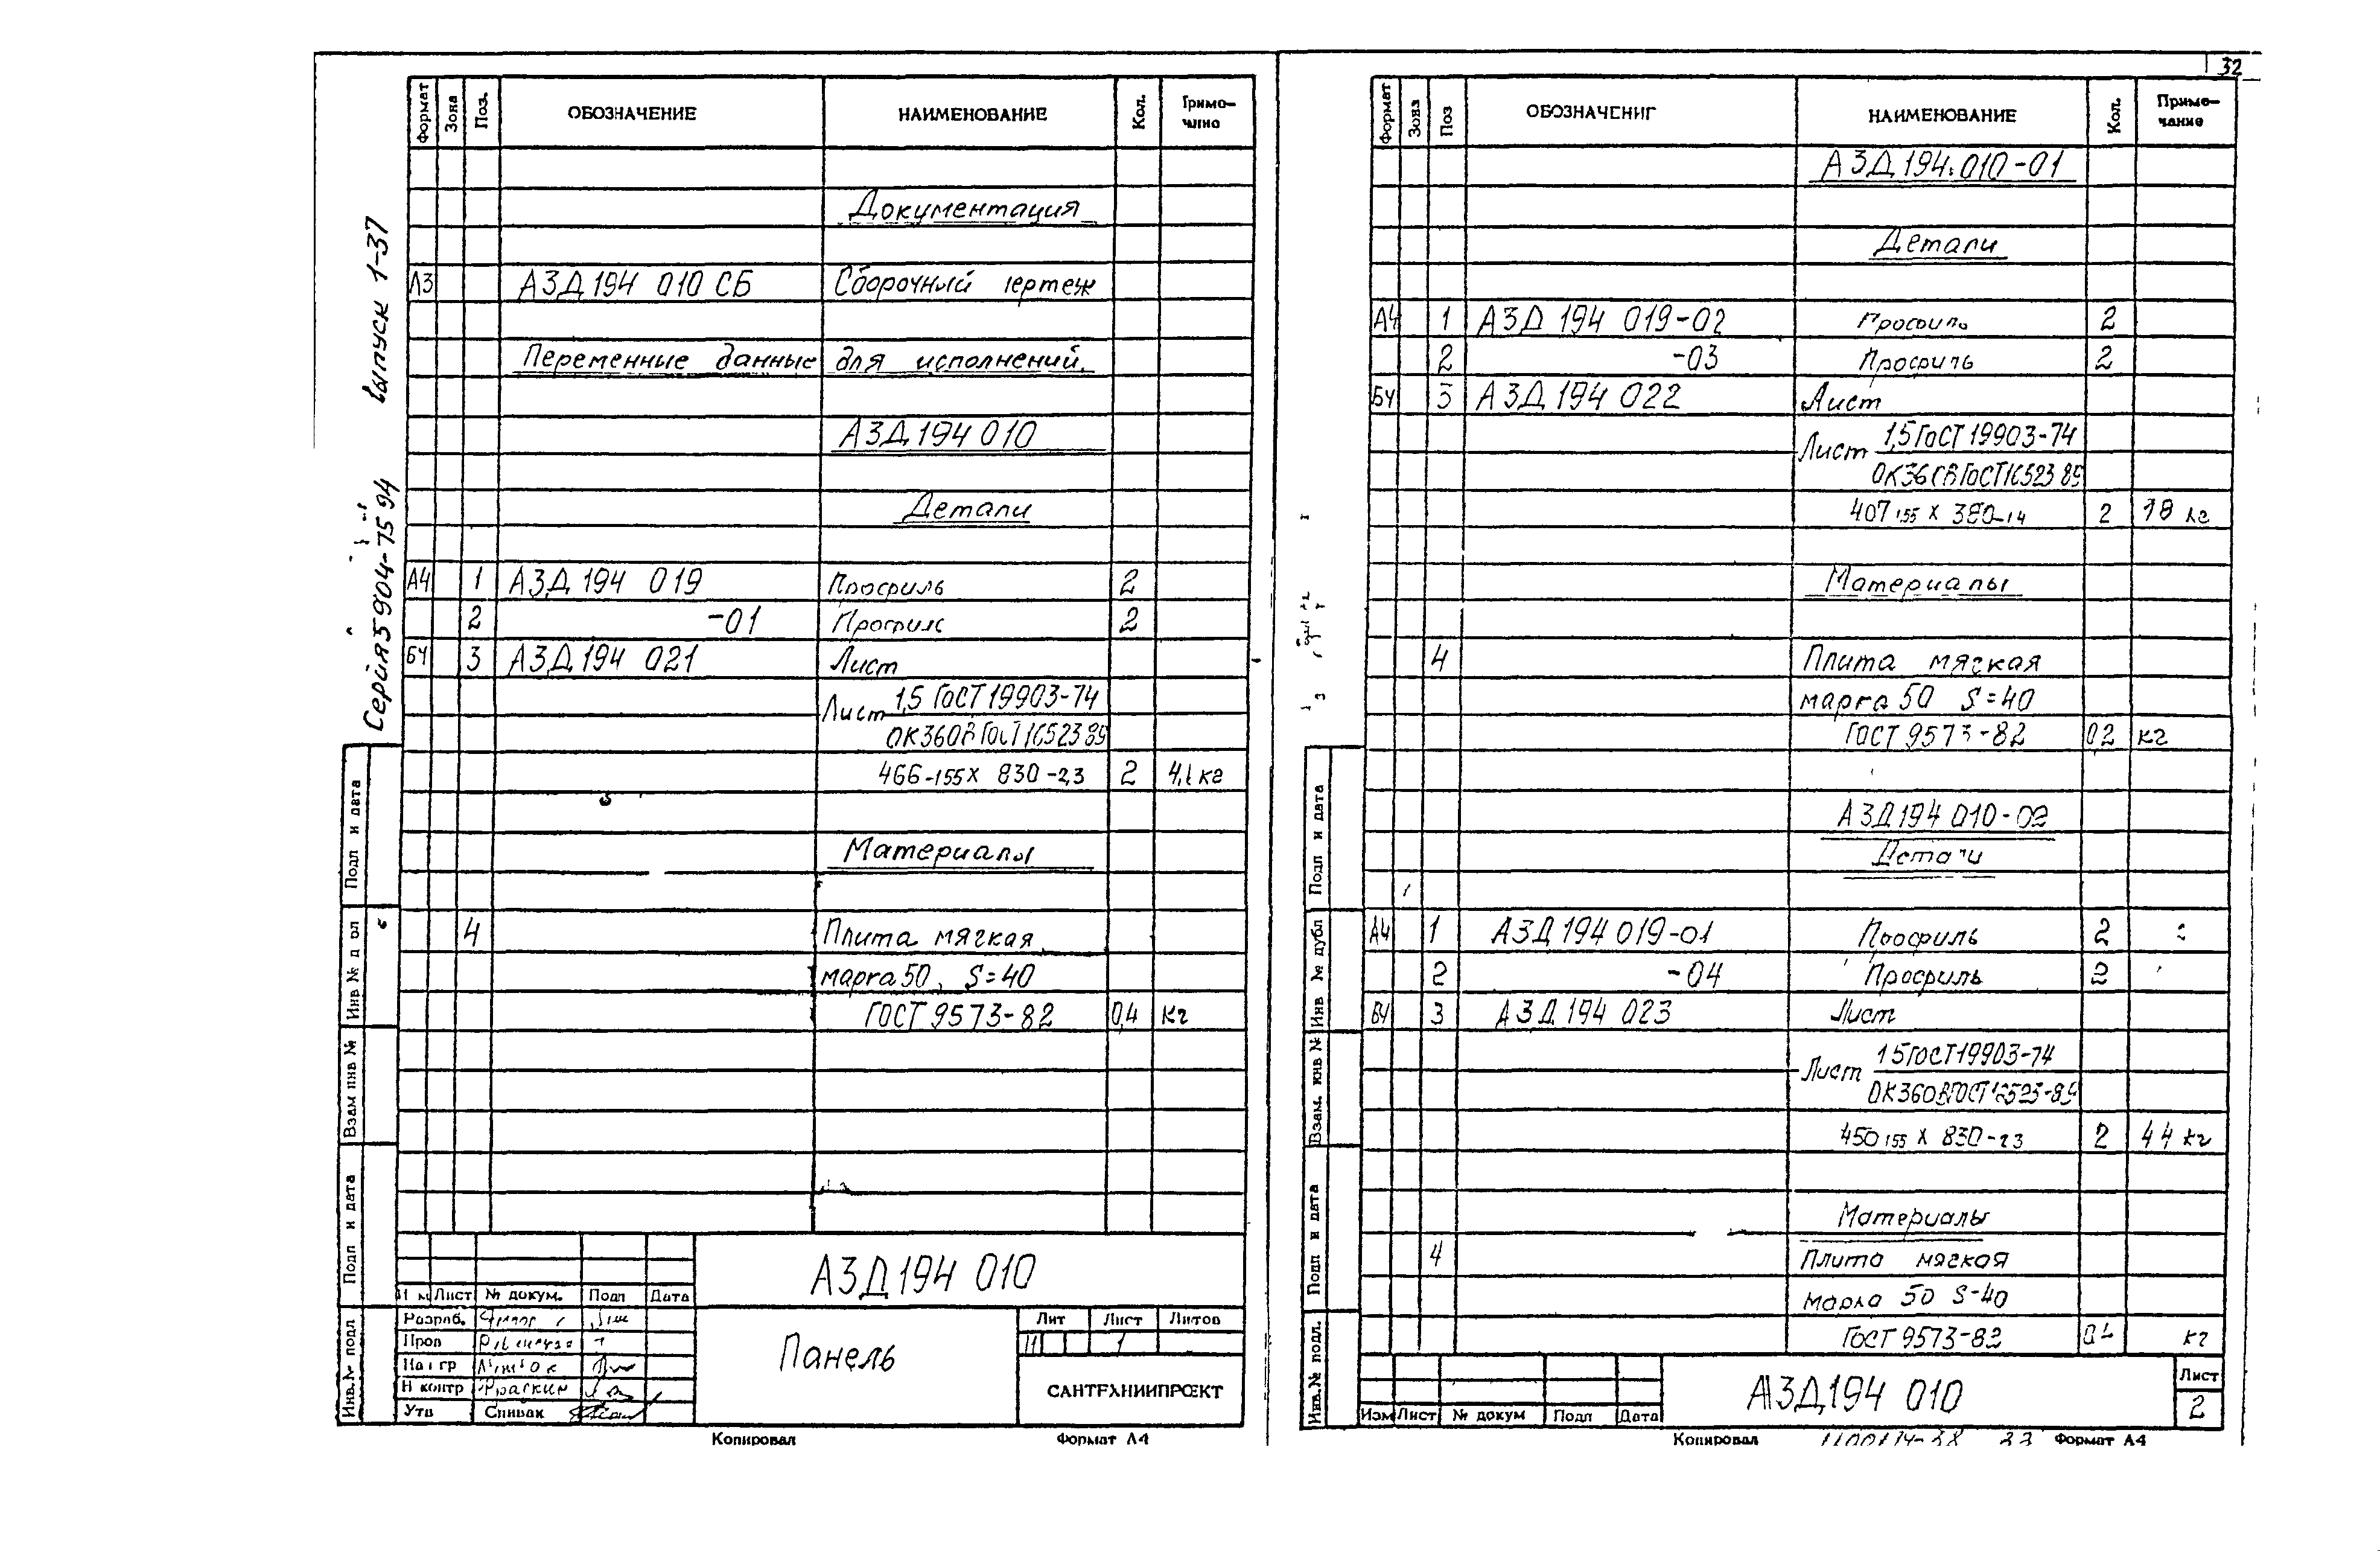 32
Серия 5 904-75 94 выпуск 1-37
Формат Зона Поз. ОБОЗНАЧЕНИЕ НАИМЕНОВАНИЕ Кол.
Документация
А3 АЗД 194 010 СБ Сборочный чертеж
Переменные данные для исполнений.
АЗД 194 010
Детали
А4 1 АЗД 194 019 Профиль 2
2 -01 Профиль 2
БЧ 3 АЗД 194 021 Лист
Лист 1,5 ГОСТ 19903-74
ОК360В ГОСТ 16523 89
466-155 х 830-2,3 2 кг
Материалы
4 Плита мягкая
марка 50, S=40
ГОСТ 9573-82 0,4 кг
Подп и дата
Взам инв №
Подп и дата
Инв.№ подл
АЗД 194 010
Лист № докум. Подп Дата
Разраб.
Пров
Н контр
Утв Спивак
Панель
Лит Лист Литов
1
САНТЕХНИИПРОЕКТ
Копировал Формат А4
Формат Зона Поз ОБОЗНАЧЕНИЕ НАИМЕНОВАНИЕ Кол. Приме-
чание
АЗД 194.010-01
Детали
А4 1 АЗД 194 019-02 Профиль 2
2 -03 Профиль 2
БЧ 3 АЗД 194 022 Лист
Лист 1,5 ГОСТ 19903-74
ОК360В ГОСТ 16523 89
407 155 х 380-14 2 кг
Материалы
4 Плита мягкая
марка 50 S=40
ГОСТ 9573-82 0,2 кг
АЗД 194 010-02
Детали
А4 1 АЗД 194 019-01 Профиль 2
2 -04 Профиль 2
БЧ 3 АЗД 194 023 Лист
Лист 1 5 ГОСТ 19903-74
ОК360В ГОСТ 16523-89
450 155 х 830-23 2 4 4 кг
Материалы
4 Плита мягкая
марка 50 S-40
ГОСТ 9573-82 кг
Подп и дата
Инв № дубл
Взам. инв №
Подп и дата
Инв.№ подл.
Изм Лист № докум Подп Дата
АЗД 194 010
Лист
2
Копировал Формат А4